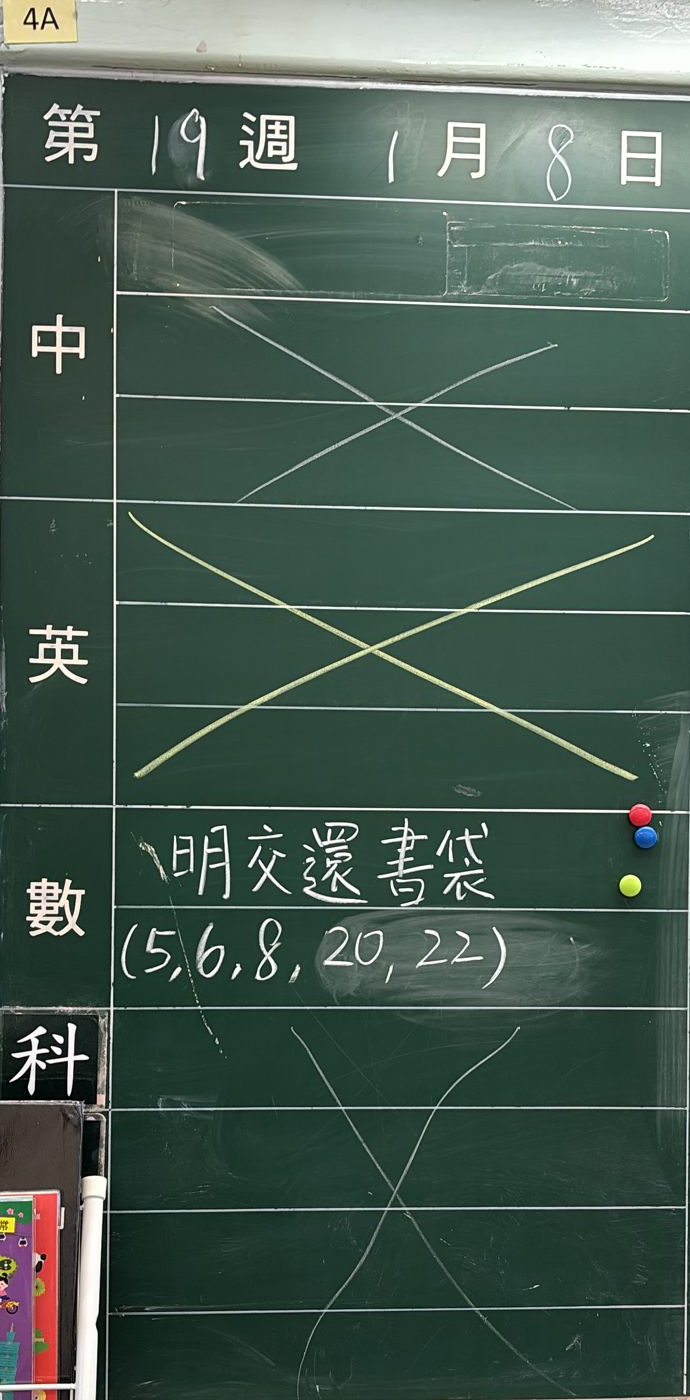 4A
第 19 週 1 月 8 日
中
英
數
明交還書袋
(5, 6, 8, 20, 22)
科